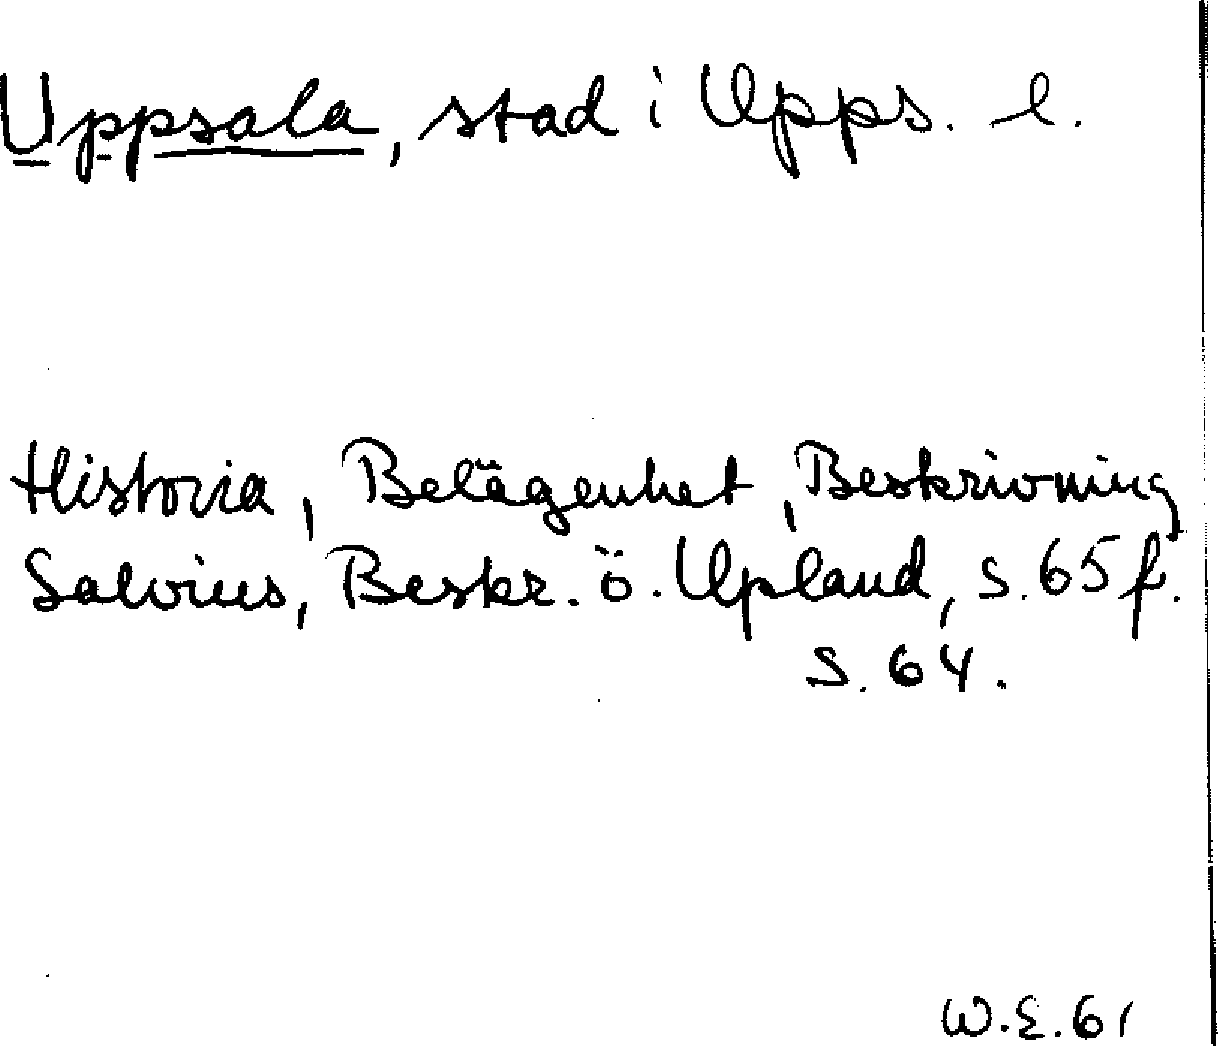 Uppsala, stad i Upps. l.
Historia, Belägenhet, Beskrivning
Salvius, Beskr. ö. Upland, s. 65 f.
s. 64.
W.E. 61